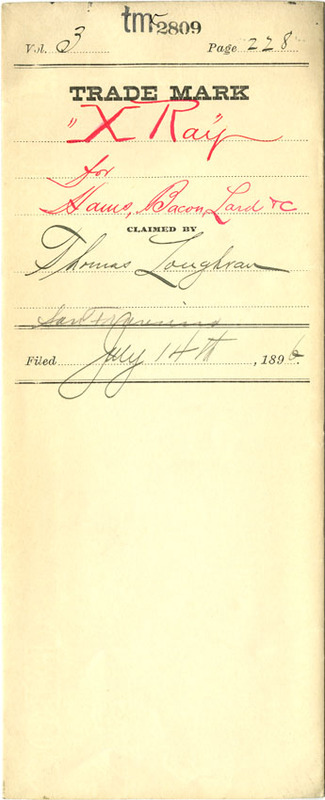 tm 2809
Vol. 3 Page 228
TRADE MARK
"X Ray"
for
Hams, Bacon, Lard &c
CLAIMED BY
Thomas Loughran
San Francisco
Filed July 14th, 1896.